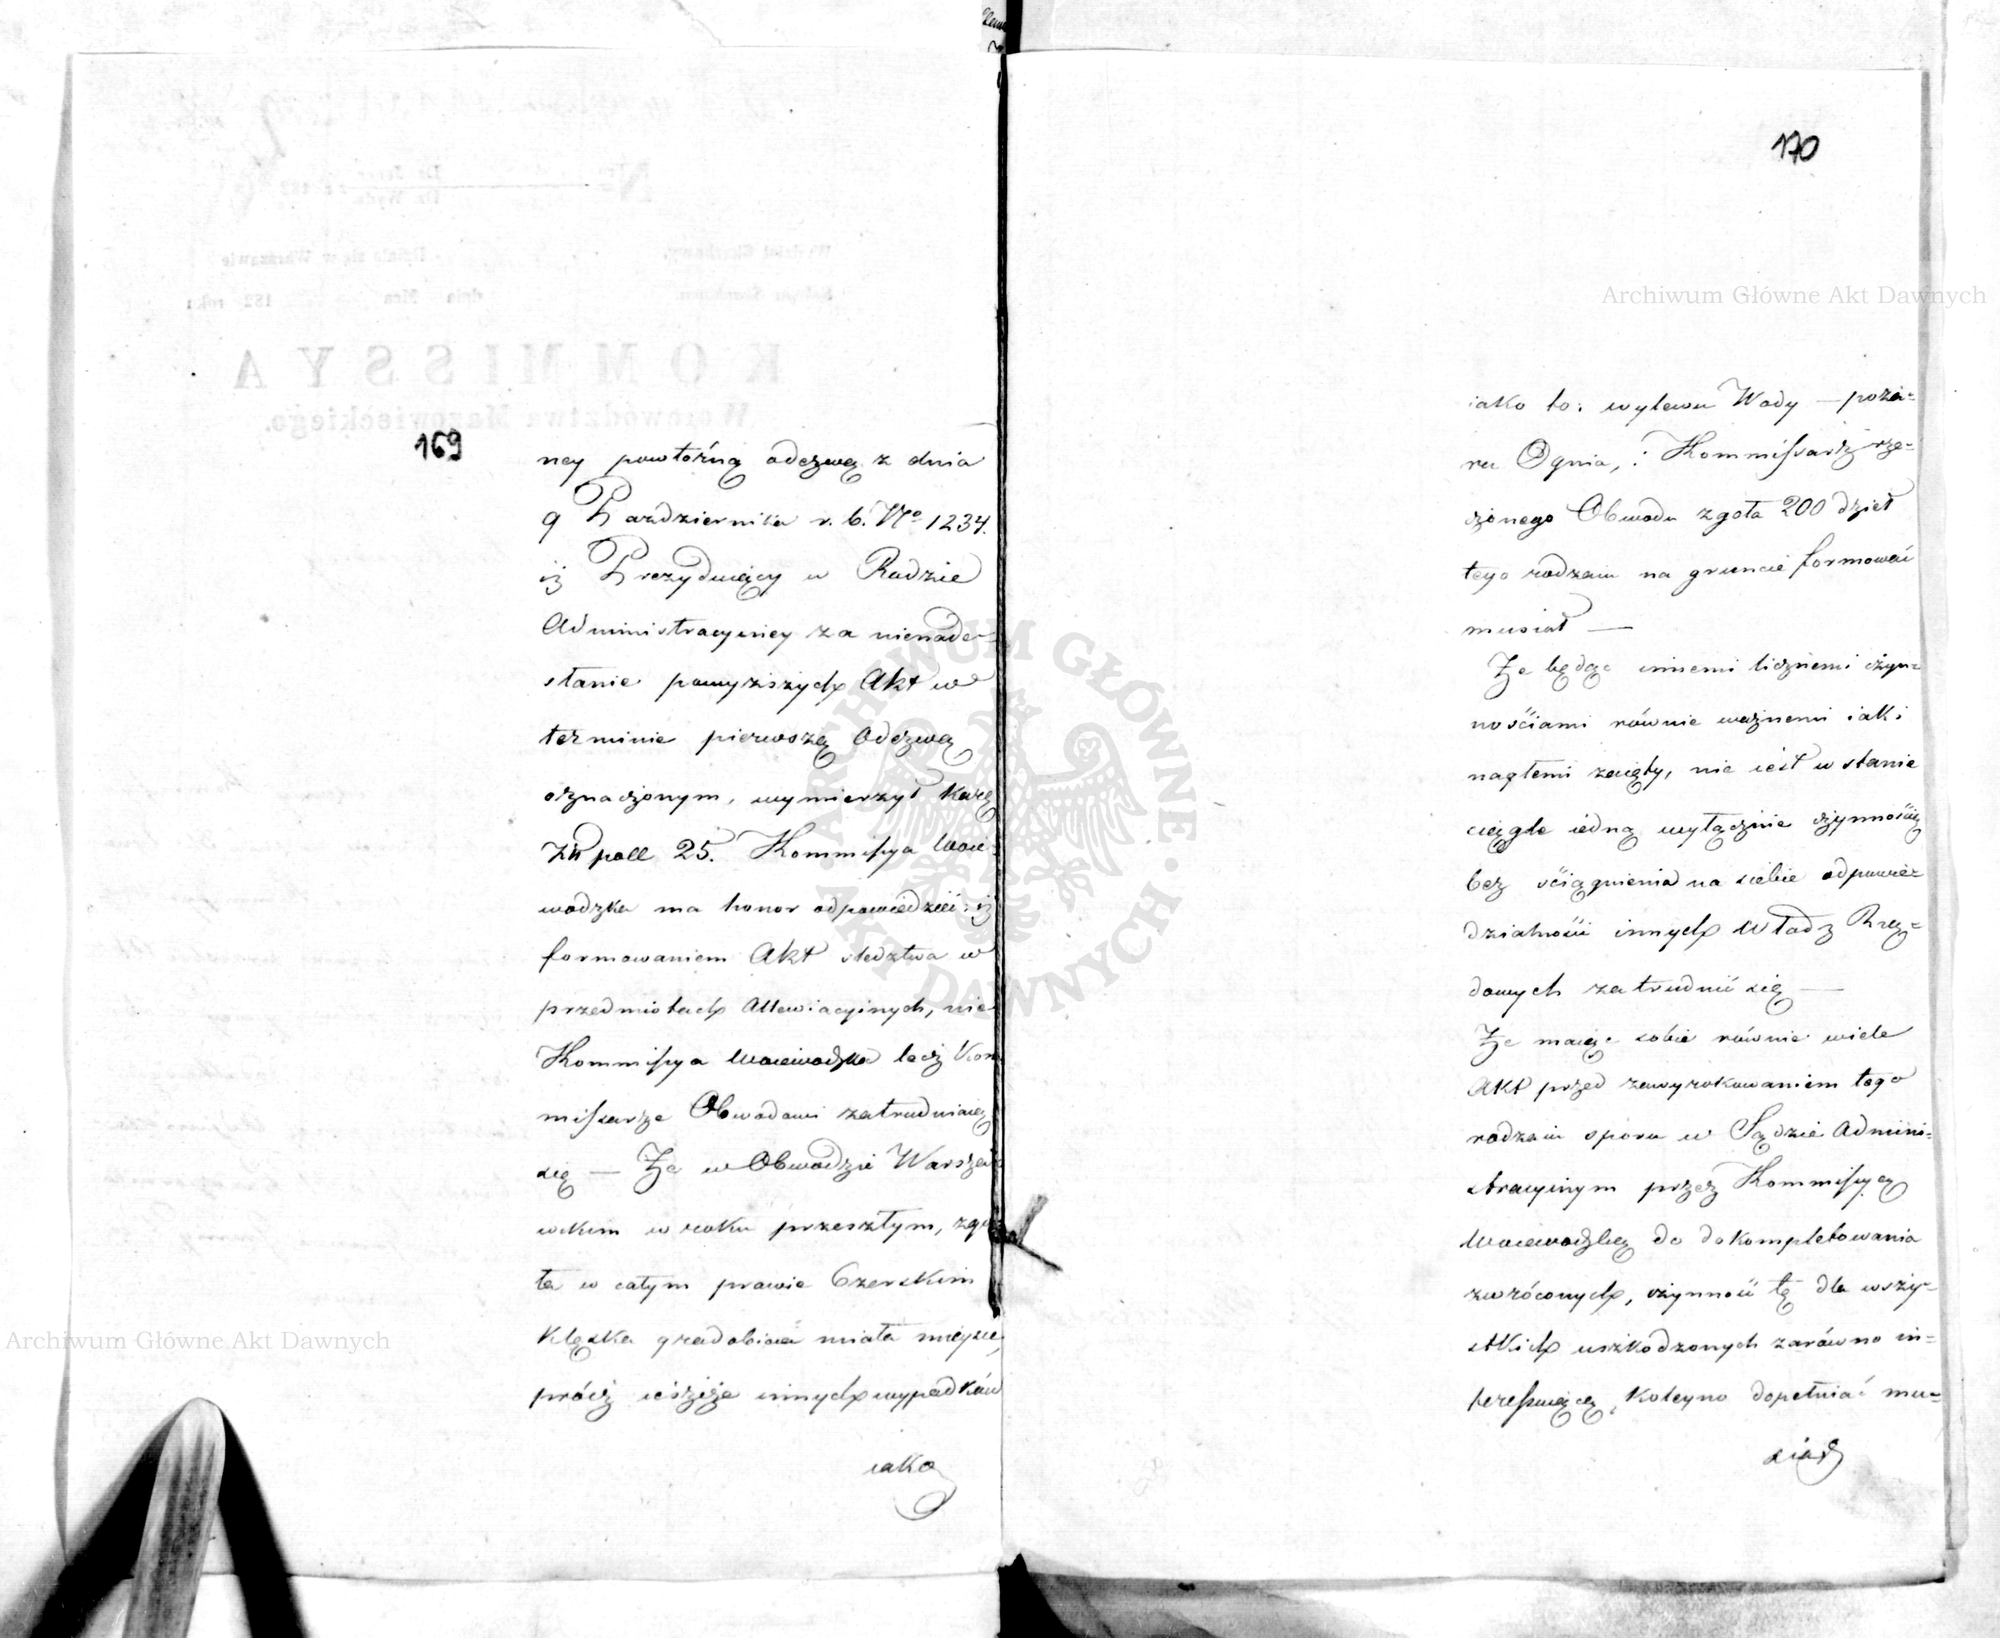 169
ney powtórną odezwą z dnia
9 Października r. b. No 1234.
iż Prezyduiący w Radzie
Administracyiney za nienade-
słanie powyższych Akt w
terminie pierwszą Odezwą
oznaczonym, wymierzył karę
Złł poll 25. Kommissya Woie-
wodzka ma honor odpowiedzieć, iż
formowaniem Akt śledztwa w
przedmiotach Allewiacyinych, nie
Kommissya Woiewodzka lecz Kom
missarze Obwodowi zatrudniaią
się — Że w Obwodzie Warsza-
wskim w roku przeszłym, zgo
ła w całym prawie Czerskim
klęska gradobicia miała mieysce,
prócz ieszcze innych wypadków
iako
170
iako to: wylewu Wody — poża-
ru Ognia, : Kommissarz rzą-
dzonego Obwodu zgoła 200 dzieł
tego rodzaiu na gruncie formować
musiał —
Że będąc innemi licznemi czyn-
nościami równie ważnemi iak i
nagłemi zaięty, nie iest w stanie
ciągle iedną wyłącznie czynnością
bez ściągnienia na siebie odpowie-
dzialności innych Władz Rzą-
dowych zatrudnić się —
Że maiąc sobie równie wiele
Akt przed zawyrokowaniem tego
rodzaiu sporu w Sądzie Admini-
stracyinym przez Kommissyą
Woiewodzką do dokompletowania
zwróconych, czynność tę dla wszy-
stkich uszkodzonych zarówno in-
teressuiącą, koleyno dopełniać mu-
siał
Archiwum Główne Akt Dawnych
Archiwum Główne Akt Dawnych
ARCHIWUM GŁÓWNE AKT DAWNYCH
KOMMISSYA
Województwa Mazowieckiego.